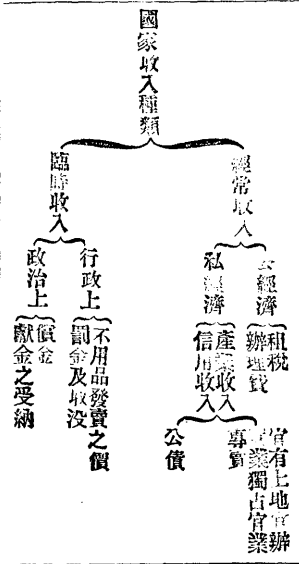 國家收入種類
經常收入
公經濟
租稅
辦理費
私經濟
產業收入
官有土地官辦
官業獨占官業
專賣
信用收入
公債
臨時收入
行政上
不用品發賣之價
罰金及收没
政治上
償金
獻金之受納